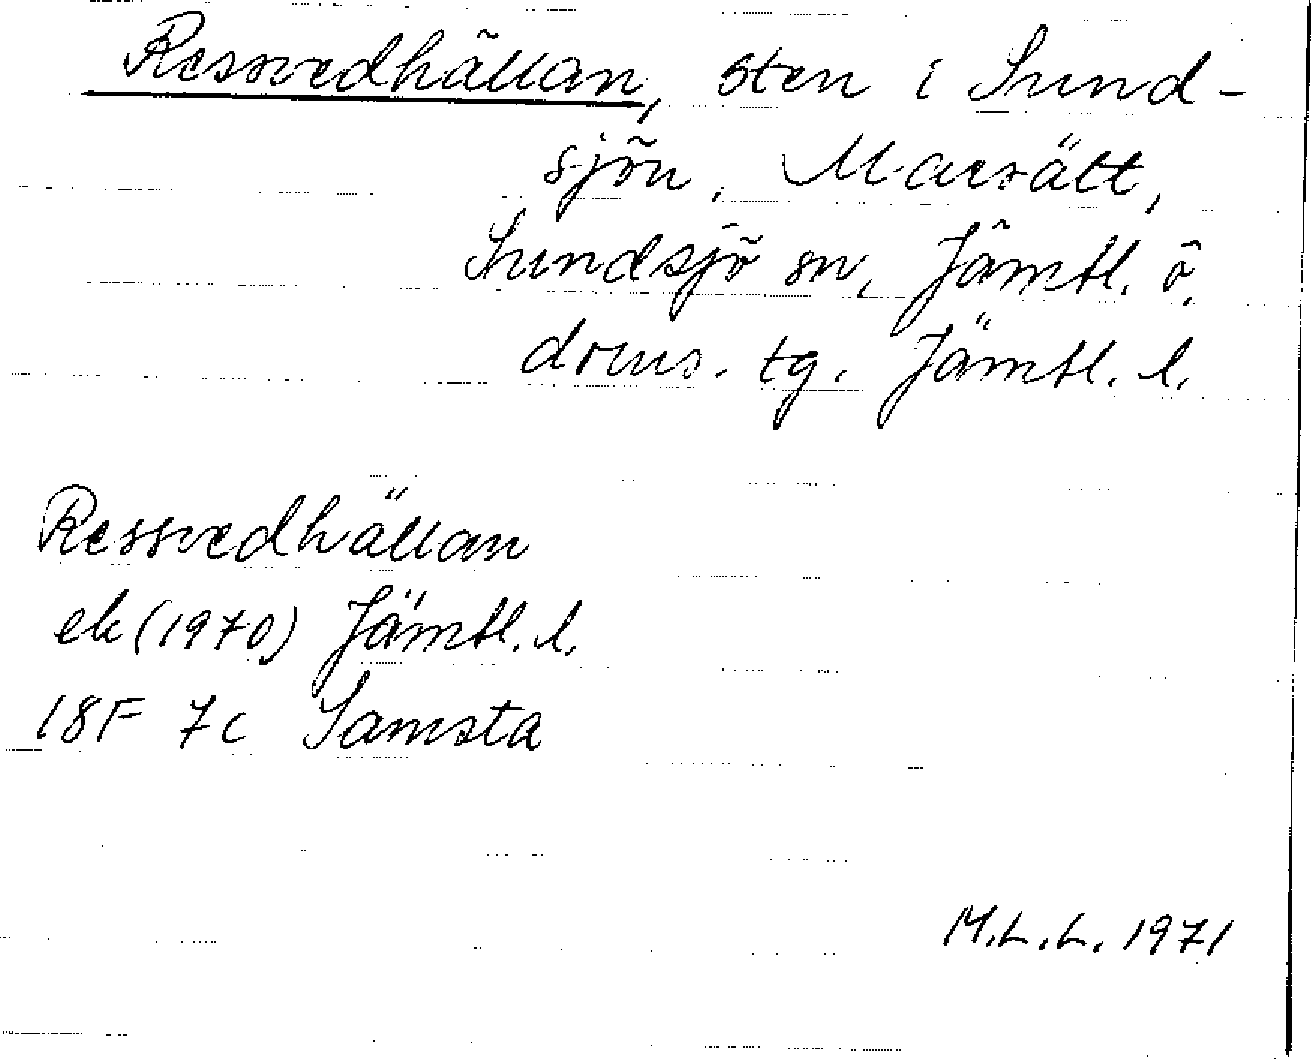 Ressvedhällan, sten i Sund-
sjön, Marsätt,
Sundsjö sn, Jämtl. ö.
doms. tg. Jämtl. l.
Ressvedhällan
ek (1970) Jämtl. l.
18F 7c Samsta
M.L.L. 1971